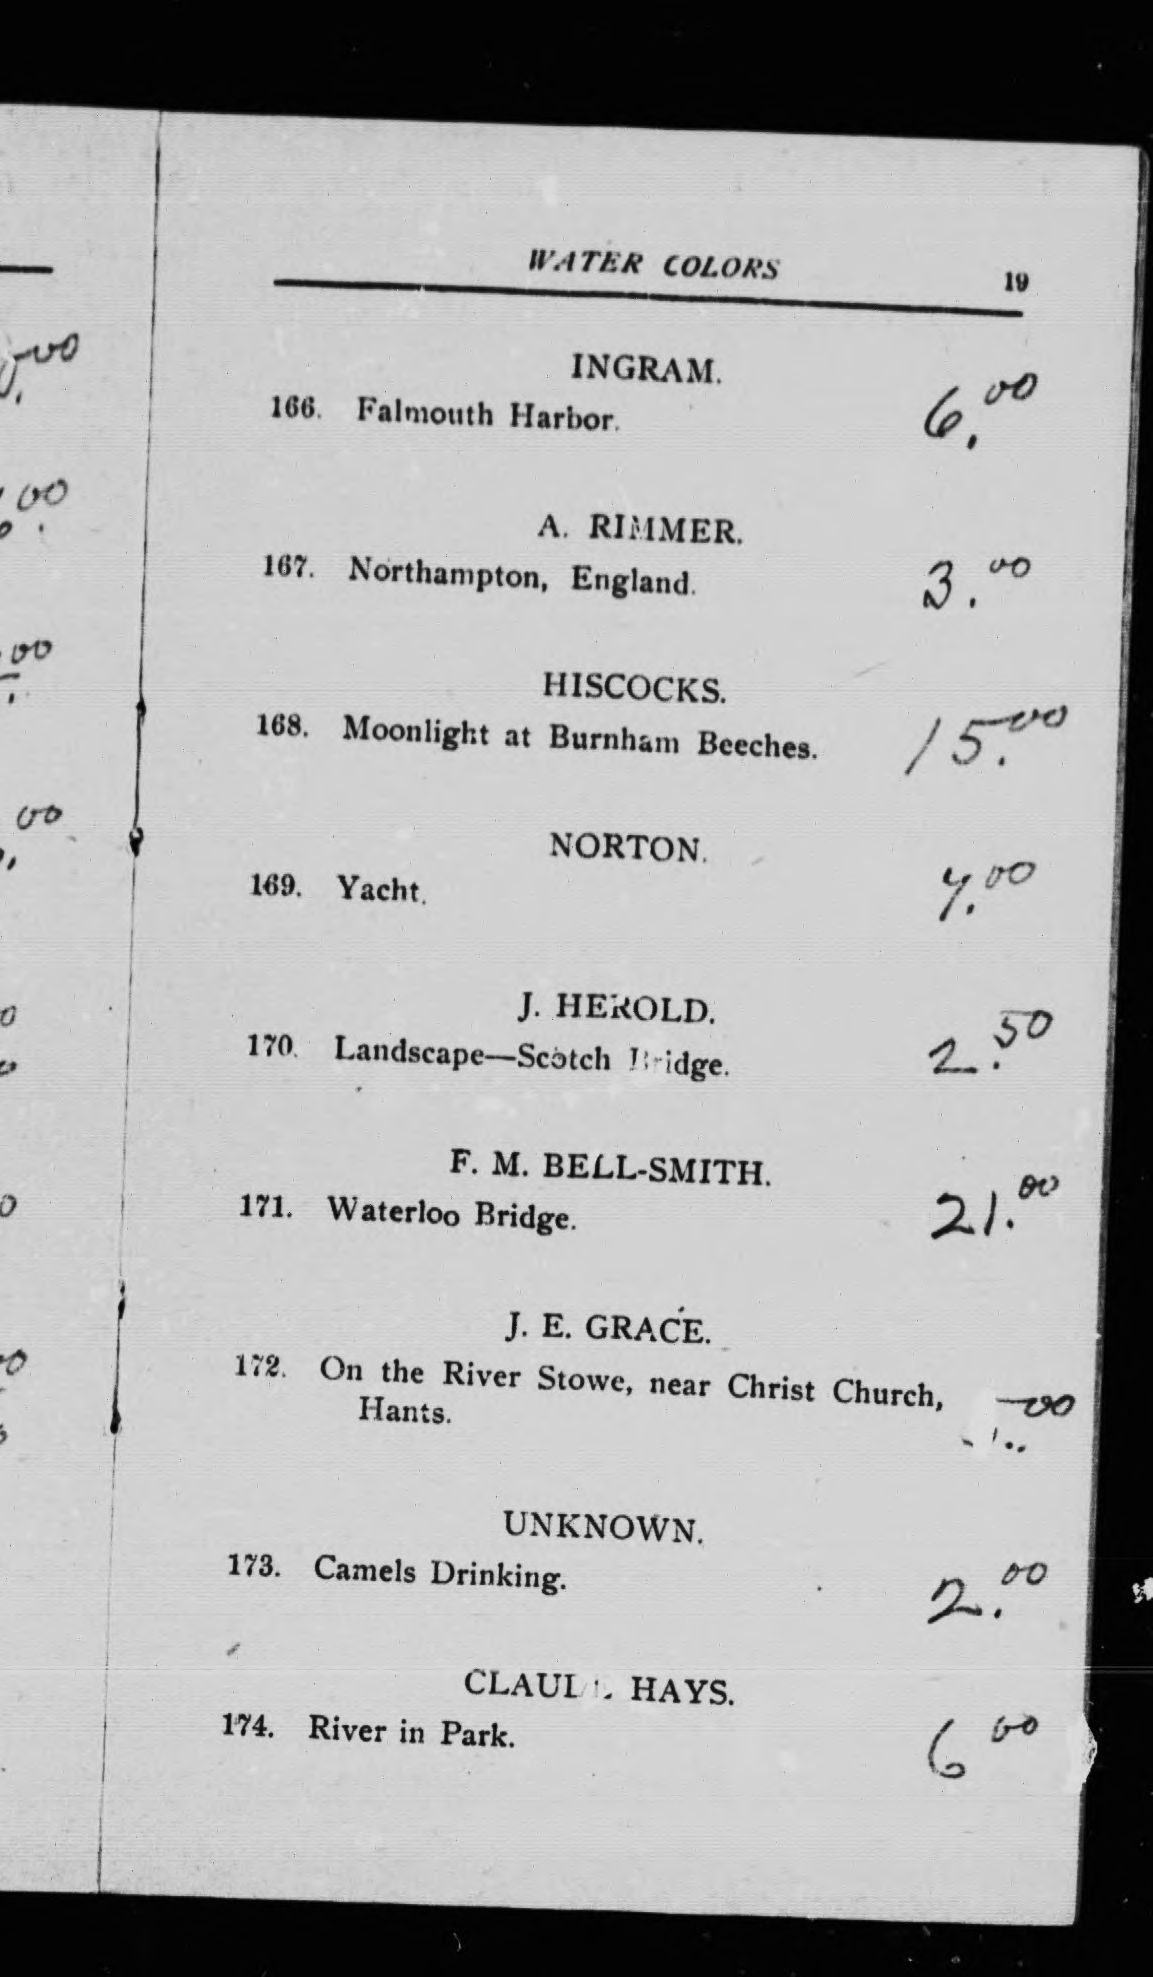 WATER COLORS 19
INGRAM.
166. Falmouth Harbor. 6.00
A. RIMMER.
167. Northampton, England. 3.00
HISCOCKS.
168. Moonlight at Burnham Beeches. 15.00
NORTON.
169. Yacht. 4.00
J. HEROLD.
170. Landscape—Scotch Bridge. 2.50
F. M. BELL-SMITH.
171. Waterloo Bridge. 21.00
J. E. GRACE.
172. On the River Stowe, near Christ Church,
Hants.
UNKNOWN.
173. Camels Drinking. 2.00
CLAUDE HAYS.
174. River in Park. 6 00